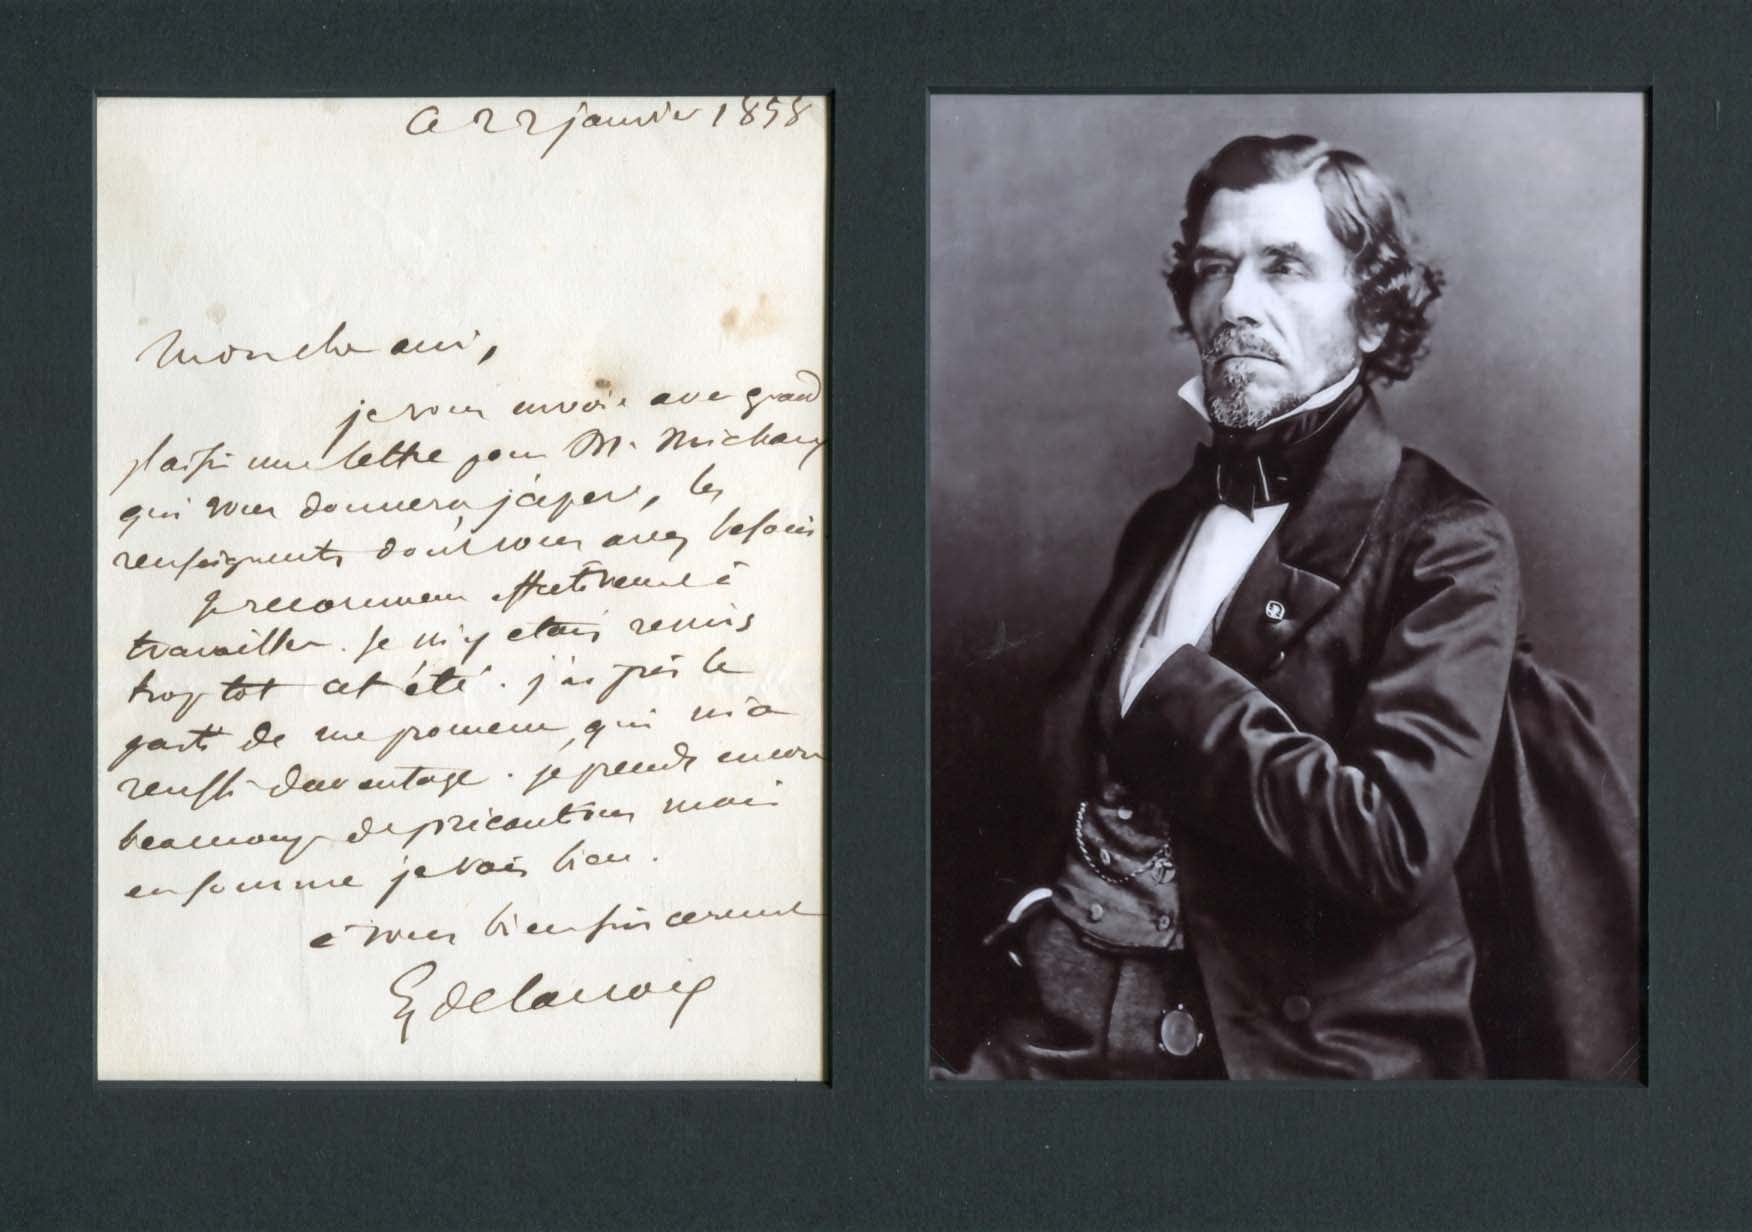 Ce 22 janvier 1858
Mon cher ami,
je vous envoie avec grand
plaisir une lettre pour M.
qui vous donnera j'espère, les
renseignents dont vous avez besoin
Je recommence effectivement à
travailler. Je m'y étais remis
trop tot cet été. j'ai pris le
parti de me promener, qui m'a
reussi davantage. je prends encore
beaucoup de précautions mais
en somme je vais bien.
à vous bien sincerement
Eg delacroix